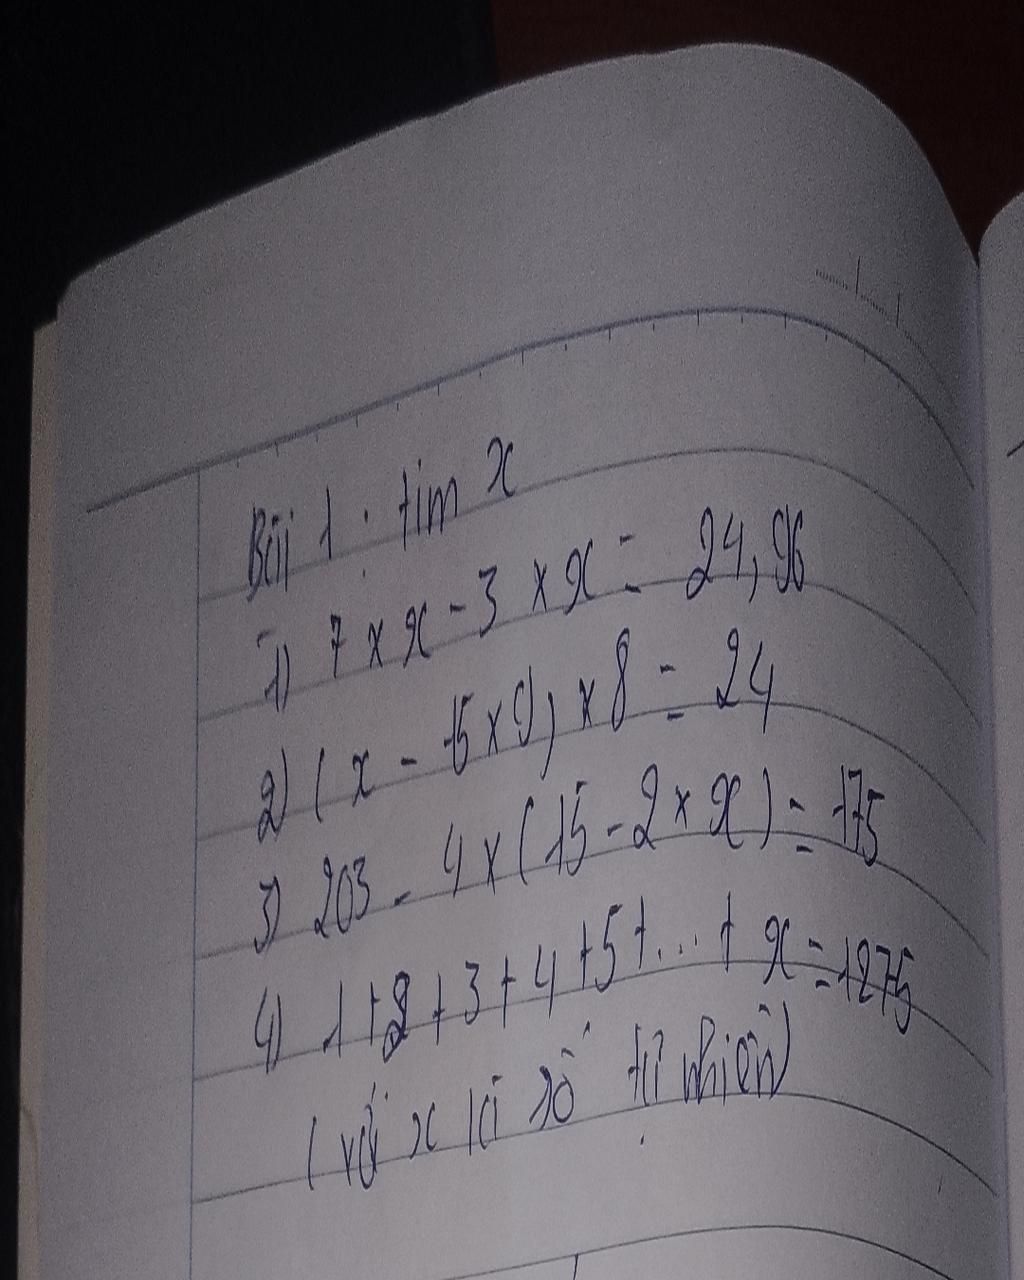 Bài 1 : tìm x
1) 7 × x - 3 × x = 24,96
2) ( x - 15 × 9) × 8 = 24
3) 203 - 4 × ( 15 - 2 × x ) = 175
4) 1 + 2 + 3 + 4 + 5 + ... + x = 1275
( với x là số tự nhiên)